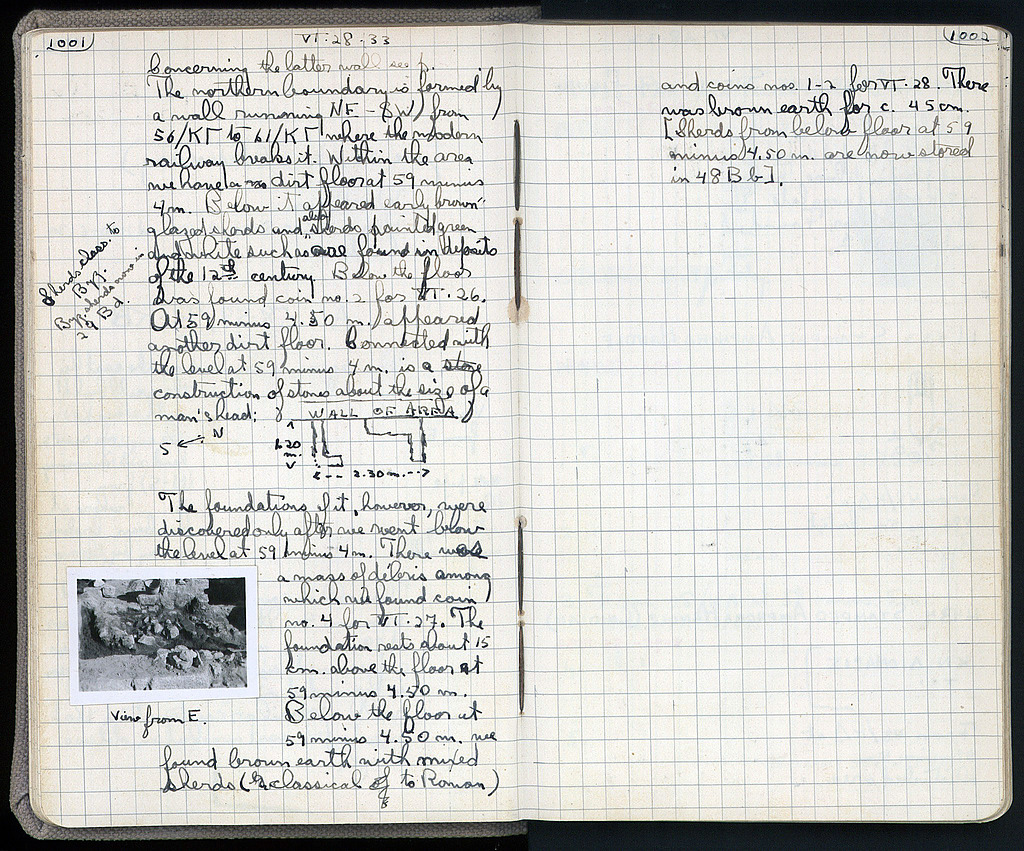 1001
VI·28·33
Concerning the latter wall see p.
The northern boundary is formed by
a wall running NE-SW from
56/ΚΓ to 61/ΚΓ where the modern
railway breaks it. Within the area
we have a dirt floor at 59 minus
4m. Below it appeared early brown-
glazed sherds and also sherds painted green
and white such as are found in deposits
of the 12th century. Below the floor
was found coin no. 2 for VI·26.
At 59 minus 4.50 m. appeared
another dirt floor. Connected with
the level at 59 minus 4 m. is a stone
construction of stones about the size of a
man's head:
WALL OF AREA
S N
1.20
m.
2.30 m.
Sherds class. to
Byz.
Byz. sherds now in
29 B d.
The foundations of it, however, were
discovered only after we went below
the level at 59 minus 4m. There was
a mass of débris among
which we found coin
no. 4 for VI·27. The
foundation rests about 15
cm. above the floor at
59 minus 4.50 m.
Below the floor at
59 minus 4.50 m. we
View from E.
found brown earth with mixed
sherds (classical to Roman)
1002
and coins nos. 1-2 for VI·28. There
was brown earth for c. 45 cm.
[Sherds from below floor at 59
minus 4.50 m. are now stored
in 48 B b].